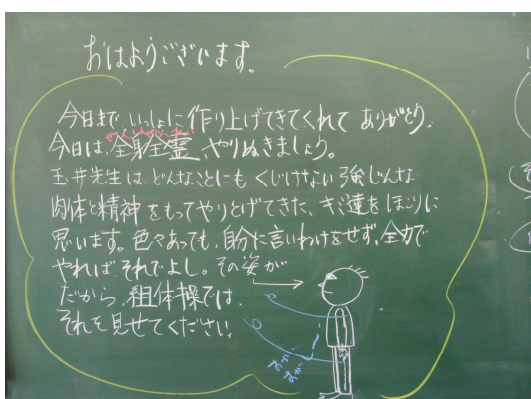 おはようございます。
今日まで、いっしょに作り上げてきてくれて ありがとう。
ぜんしんぜんれい
今日は、全身全霊、やりぬきましょう。
玉井先生は どんなことにも くじけない 強じんな
肉体と精神をもってやりとげてきた、キミ達をほこりに
思います。色々あっても、自分に言いわけをせず、全力で
やれば それでよし。その姿が
だから、組体操では、
それを見せてください。